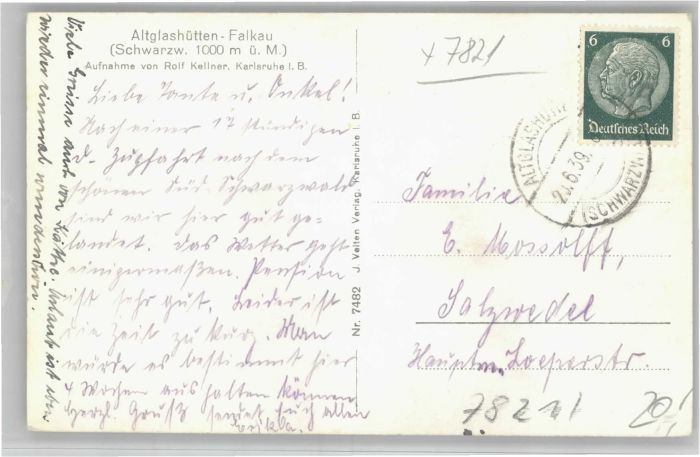 Altglashütten - Falkau
(Schwarzw. 1000 m ü. M.)
Aufnahme von Rolf Kellner, Karlsruhe i. B.
Liebe Tante u. Onkel!
Nach einer 17 stündigen
D-Zugfahrt nach dem
schönen Süd-Schwarzwald
sind wir hier gut ge-
landet. Das Wetter geht
einigermaßen. Pension
ist sehr gut. Leider ist
die Zeit zu kurz. Man
würde es bestimmt hier
4 Wochen aushalten können
Herzl. Gruß sendet Euch allen
Erika.
Viele Grüsse auch von Käthe. Urlaub ist eben
wieder einmal wunderschön.
Nr. 7482 J. Velten Verlag, Karlsruhe i. B.
x 7821
6 6
Deutsches Reich
ALTGLASHÜTT
6.39.
(SCHWARZW
Familie
E. Mossolff,
Salzwedel
Hauptm. Loeperstr.
78211
20,